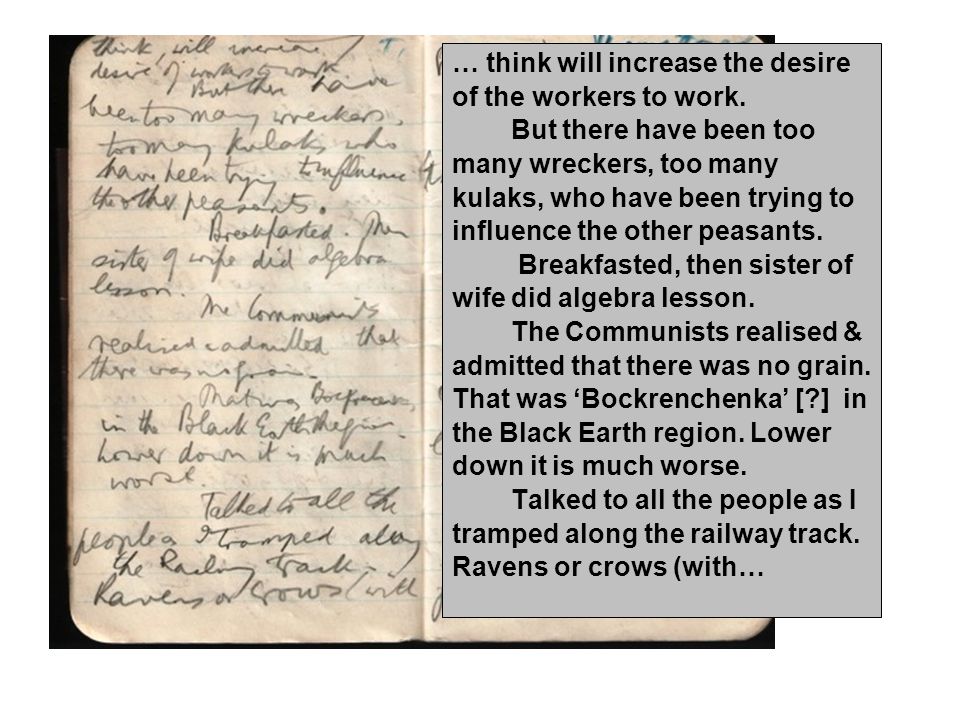 think, will increase
desire of workers to work
But there have
been too many wreckers,
too many kulaks who
have been trying to influence
the other peasants.
Breakfasted. Then
sister of wife did algebra
lesson.
The Communists
realised & admitted that
there was no grain.
That was
in the Black Earth Region.
Lower down it is much
worse.
Talked to all the
people as I tramped along
the Railway track.
Ravens or crows (with
… think will increase the desire
of the workers to work.
But there have been too
many wreckers, too many
kulaks, who have been trying to
influence the other peasants.
Breakfasted, then sister of
wife did algebra lesson.
The Communists realised &
admitted that there was no grain.
That was ‘Bockrenchenka’ [?] in
the Black Earth region. Lower
down it is much worse.
Talked to all the people as I
tramped along the railway track.
Ravens or crows (with…